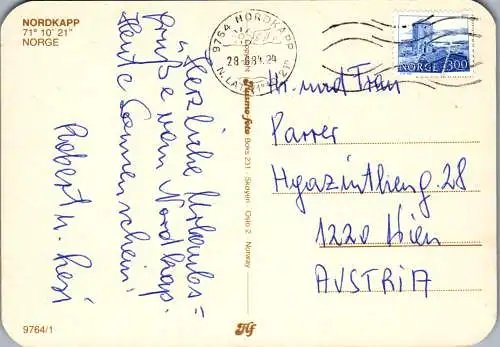 NORDKAPP
71° 10' 21"
NORGE
9764 NORDKAPP
28 84. 24
N. LAT. 71° 10' 21"
NORGE 300
Herzliche Urlaubs=
grüße vom Nordkap.
Heute Sonnenschein!
Robert u. Lesi
Husmo-foto Boks 231 Skøyen Oslo 2 Norway
Hr. und Frau
Parrer
Hyazinthieng. 28
1220 Wien
AUSTRIA
9764/1
Hf